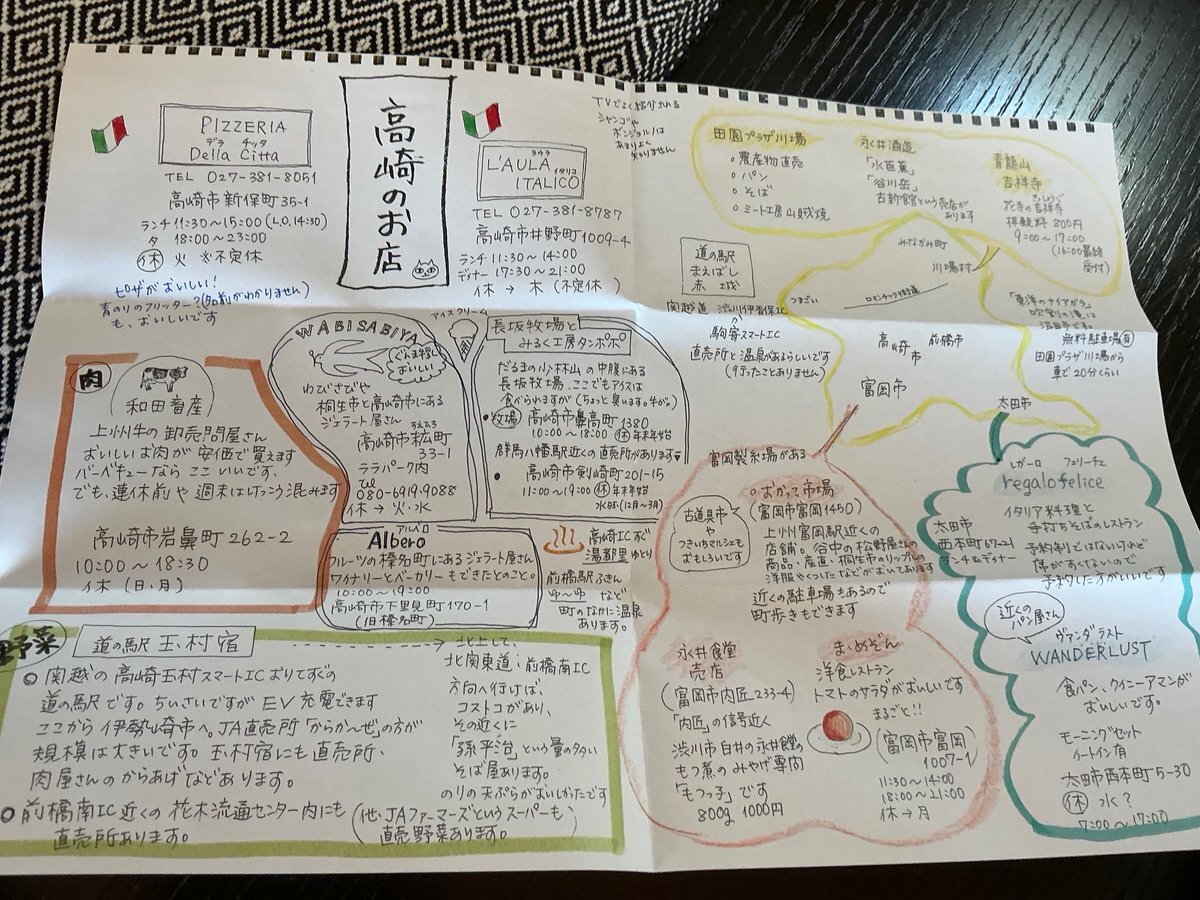 高崎のお店
PIZZERIA
デラ チッタ
Della Citta
TEL 027-381-8051
高崎市新保町35-1
ランチ11:30〜15:00(L.O.14:30)
夕 18:00〜23:00
休 火 ※不定休
ピザがおいしい!
青のりのフリッター?(名前がわかりません)
も、おいしいです
ラウラ
L'AULA
イタリコ
ITALICO
TEL 027-381-8787
高崎市井野町1009-4
ランチ 11:30〜14:00
ディナー 17:30〜21:00
休 → 木 (不定休)
TVでよく紹介される
シャンゴや
ボンジョルノは
あまりよく
知りません
田園プラザ川場
○農産物直売
○パン
○そば
○ミート工房 山賊焼
永井酒造
「水芭蕉」
「谷川岳」
古新館という売店が
あります
青龍山
吉祥寺
きっしょうじ
花寺の吉祥寺
拝観料 800円
9:00〜17:00
(16:00最終
受付)
「東洋のナイアガラ」
吹割の滝は
沼田市です。
無料駐車場有
田園プラザ川場から
車で20分くらい
みなかみ町
川場村
つまごい
ロマンチック街道
高崎市
前橋市
富岡市
太田市
道の駅
まえばし
赤城
関越道 渋川伊香保IC
駒寄スマートIC
直売所と温泉があるらしいです
(行ったことありません)
肉
和田畜産
上州牛の卸売問屋さん
おいしいお肉が安価で買えます
バーベキューなら ここ いいです、
でも、連休前や 週末はけっこう混みます
高崎市岩鼻町262-2
10:00〜18:30
休 (日、月)
WABISABIYA
ぐんま特しぼり
おいしい
わびさびや
桐生市と高崎市にある
ジェラート屋さん
高崎市柘町
33-1
ララパーク内
Tel
080-6919.9088
休→火・水
アイスクリーム
長坂牧場と
みるく工房タンポポ
だるまの小林山の中腹にある
長坂牧場、ここでもアイスは
食べられますが(ちょっと臭います。牛が。)
●牧場 高崎市鼻高町1380
10:00〜18:00 休 年末年始
群馬八幡駅近くの直売所があります
● 高崎市剣崎町201-15
11:00〜19:00 休 年末年始
水曜(12月〜3月)
アルベロ
Albero
フルーツの榛名町にあるジェラート屋さん
ワイナリーとベーカリーもできたとのこと。
10:00〜19:00
高崎市下里見町170-1
(旧榛名町)
高崎ICすぐ
湯都里 ゆとり
前橋駅ふきん
ゆ〜ゆ など
町のなかに温泉
あります。
野菜
道の駅 玉村宿
◎ 関越の高崎玉村スマートICおりてすぐの
道の駅です。ちいさいですが EV充電できます
ここから伊勢崎市へ。JA直売所「からか〜ぜ」の方が
規模は大きいです。玉村宿にも直売所、
肉屋さんのからあげなどあります。
○ 前橋南IC近くの花木流通センター内にも
直売所あります。
(他、JAファーマーズというスーパーも
直売野菜あります。)
→ 北上して、
北関東道:前橋南IC
方向へ行けば、
コストコがあり、
その近くに
「孫平治」という量の多い
そば屋あります。
のりの天ぷらがおいしかたです
富岡製糸場がある
○おかって市場
(富岡市富岡1450)
古道具市
や
つきいちマルシェも
おもしろいです
上州富岡駅近くの
店舗、谷中の松野屋さんの
商品・産直・桐生市のリップルの
洋服やくつしたなどがおいてあります
近くの駐車場もあるので
町歩きもできます
永井食堂
売店
(富岡市内匠233-4)
「内匠」の信号近く
渋川市白井の永井食堂の
もつ煮のみやげ専門
「もつっ子」です
800g 1000円
まめぞん
洋食レストラン
トマトのサラダがおいしいです
まるごと!!
(富岡市富岡
1007-1)
11:30〜14:00
18:00〜21:00
休→月
レガーロ フェリーチェ
regalo felice
太田市
西本町67-21
ランチ&ディナー
イタリア料理と
手打ちそばのレストラン
予約制ではないけど
席がすくないので
予約した方がいいです
近くの
パン屋さん
ヴァンダラスト
WANDERLUST
食パン、クイニーアマンが
おいしいです。
モーニングセット
イートイン有
太田市西本町5-30
休 水?
7:00〜17:00